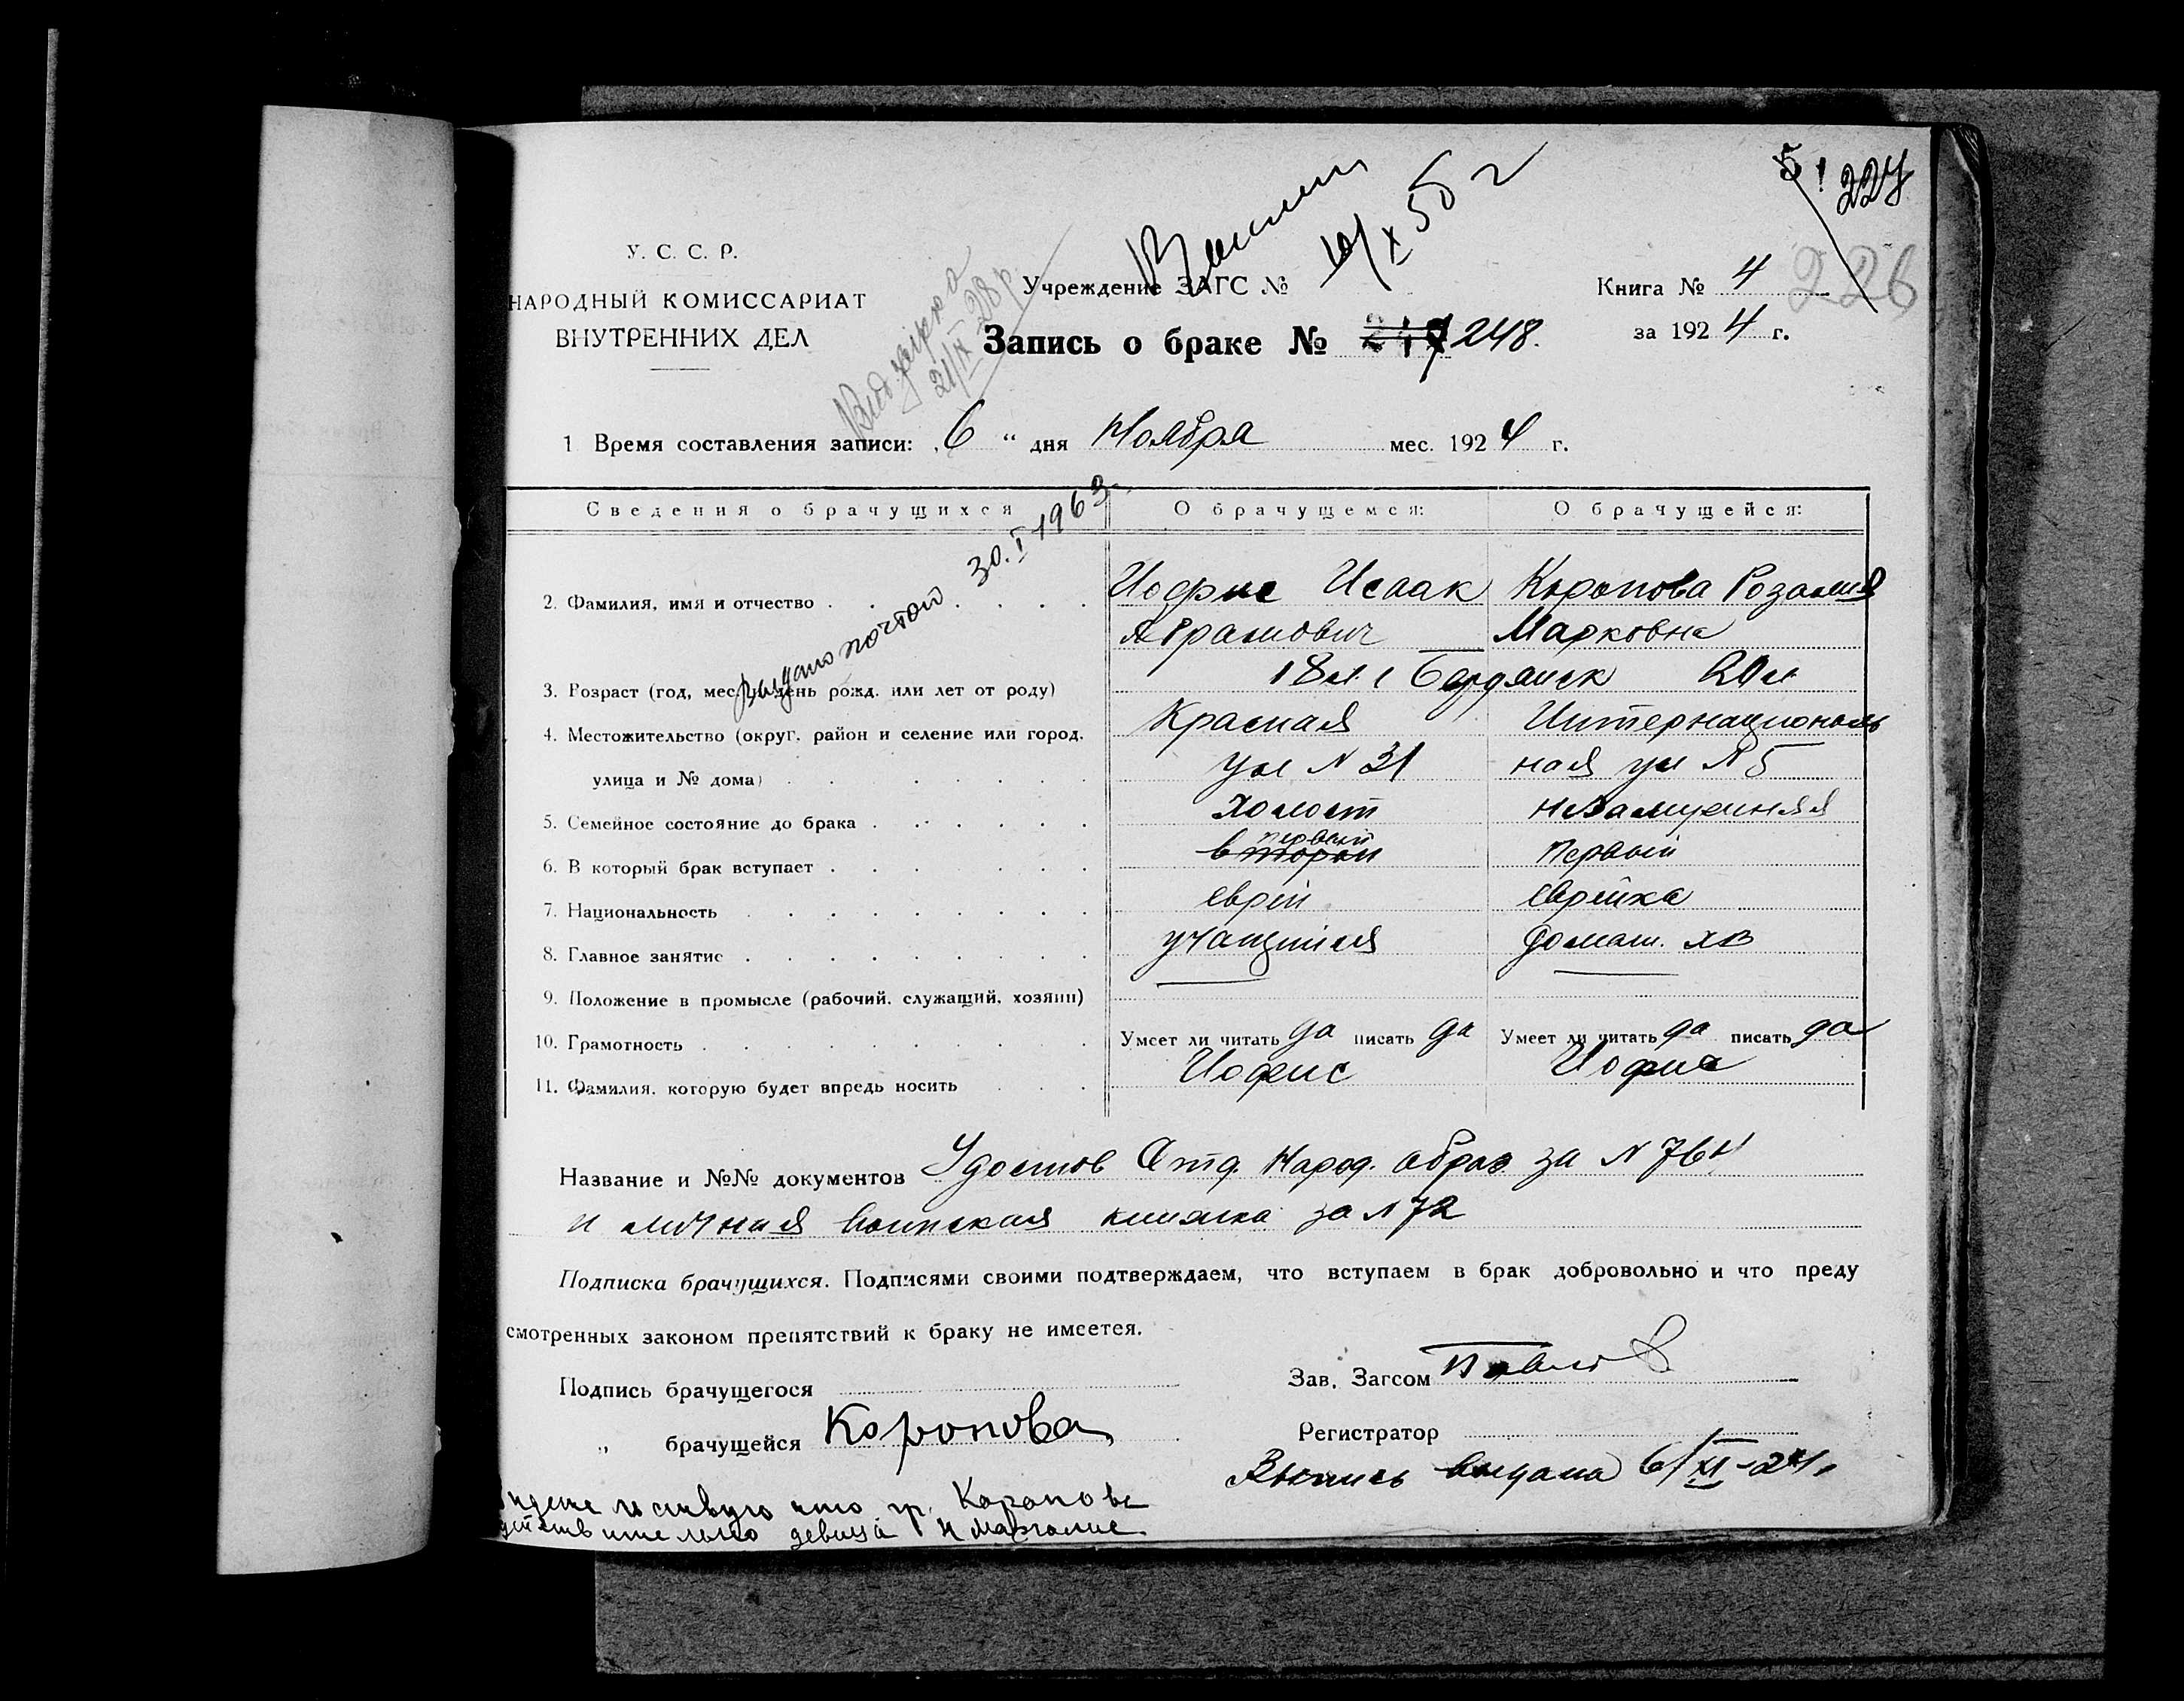 5 ! 227
226
У. С. С. Р.
НАРОДНЫЙ КОМИССАРИАТ
ВНУТРЕННИХ ДЕЛ
10/X 50 г
21/IX 28 р.
Учреждение ЗАГС №
Запись о браке № 247 248.
Книга № 4
за 1924 г.
1 Время составления записи: „6“ дня Ноября мес. 1924 г.
Выдано почтой 30.I 1963
Сведения о брачущихся О брачущемся: О брачущейся:
2. Фамилия, имя и отчество Иофис Исаак Коропова Розалия
Абрамович Марковна
3. Возраст (год, мес. и день рожд. или лет от роду) 18 л. г Бердянск 20 л
4. Местожительство (округ, район и селение или город, Красная Интернациональ
улица и № дома) ул N 31 ная ул N 5
5. Семейное состояние до брака холост незамужняя
6. В который брак вступает второй первый первый
7. Национальность еврей еврейка
8. Главное занятие учащийся домаш. хв
9. Положение в промысле (рабочий, служащий, хозяин)
10. Грамотность Умеет ли читать да писать да Умеет ли читать да писать да
11. Фамилия, которую будет впредь носить Иофис Иофис
Название и №№ документов Удостов Отд. Народ. образ за N 764
и личная воинская книжка за N 72
Подписка брачущихся. Подписями своими подтверждаем, что вступаем в брак добровольно и что преду
смотренных законом препятствий к браку не имеется.
Подпись брачущегося
Зав. Загсом Павлов
„ брачущейся Коропова
Регистратор
Выпись выдана 6/XI-24 г
что гр. Коропова
действительно девица